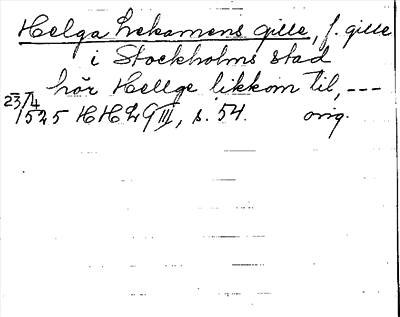 Helga Lekamens gille, f. gille
i Stockholms stad
hör Hellge likkom til, ---
23/4 1525 HH 29 III, s. 54. orig.